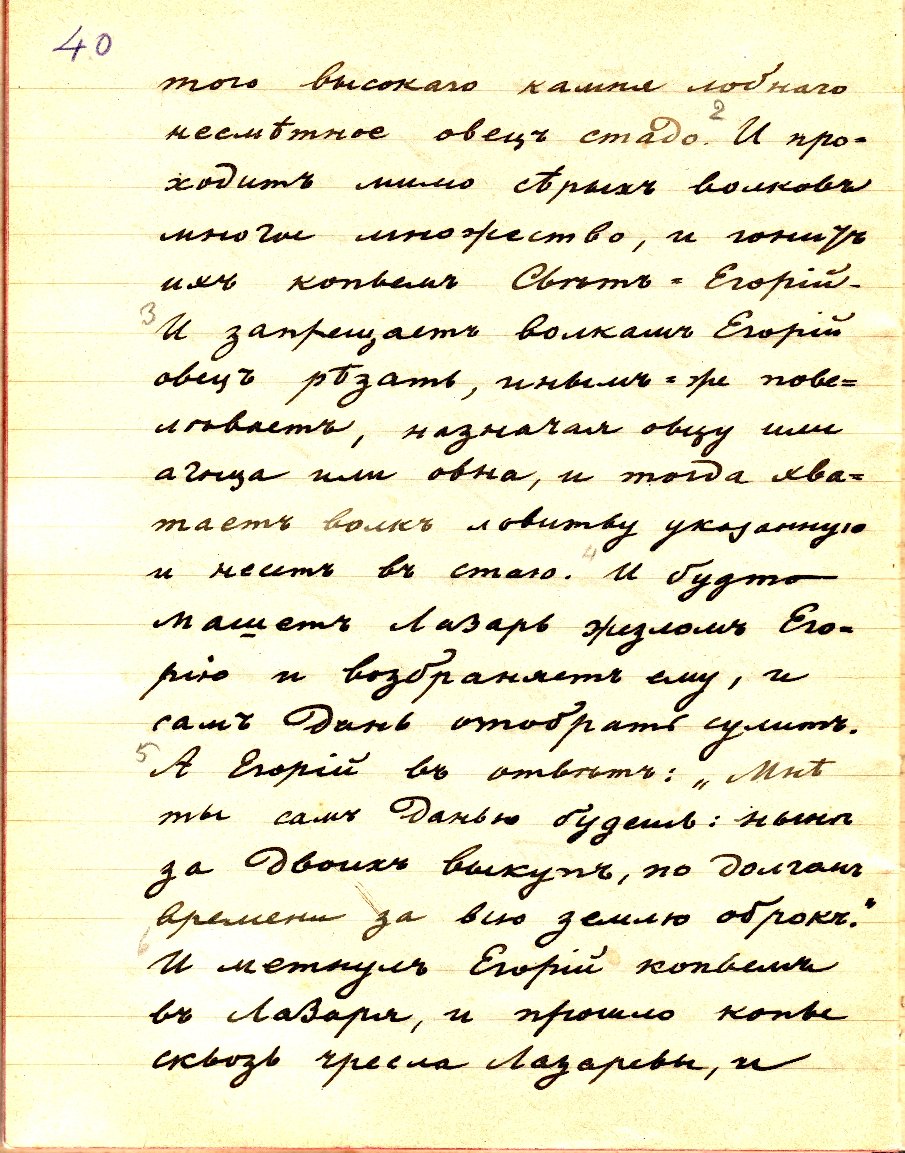 40
того высокаго камня лобнаго
несмѣтное овецъ стадо. 2 И про=
ходитъ мимо сѣрыхъ волковъ
многое множество, и гонитъ
ихъ копьемъ Свѣтъ = Егорій.
3 И запрещаетъ волкамъ Егорій
овецъ рѣзать, инымъ = же пове=
лѣваетъ, назначая овцу или
агнца или овна, и тогда хва=
таетъ волкъ ловитву указанную
и несетъ въ стаю. 4 И будто
машетъ Лазарь жезломъ Его=
рію и возбраняетъ ему, и
самъ дань отобрать сулитъ.
5 А Егорій въ отвѣтъ: „Мнѣ
ты самъ данью будешь: нынѣ
за двоихъ выкупъ, по долгомъ
времени за всю землю оброкъ."
6 И метнулъ Егорій копьемъ
въ Лазаря, и прошло копье
сквозь чресла Лазаревы, и